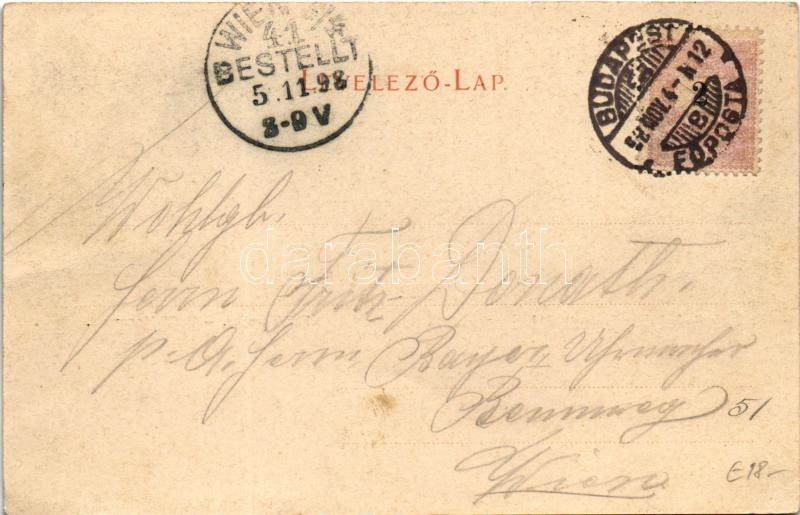 WIEN
41
BESTELLT
5.11.98
8-9 V
LEVELEZŐ-LAP.
BUDAPEST
FŐPOSTA
Wohlgb.
Herrn Fritz Donath.
p. A. Herrn Bayer, Uhrmacher
Rennweg 51
Wien
darabanth
E18-